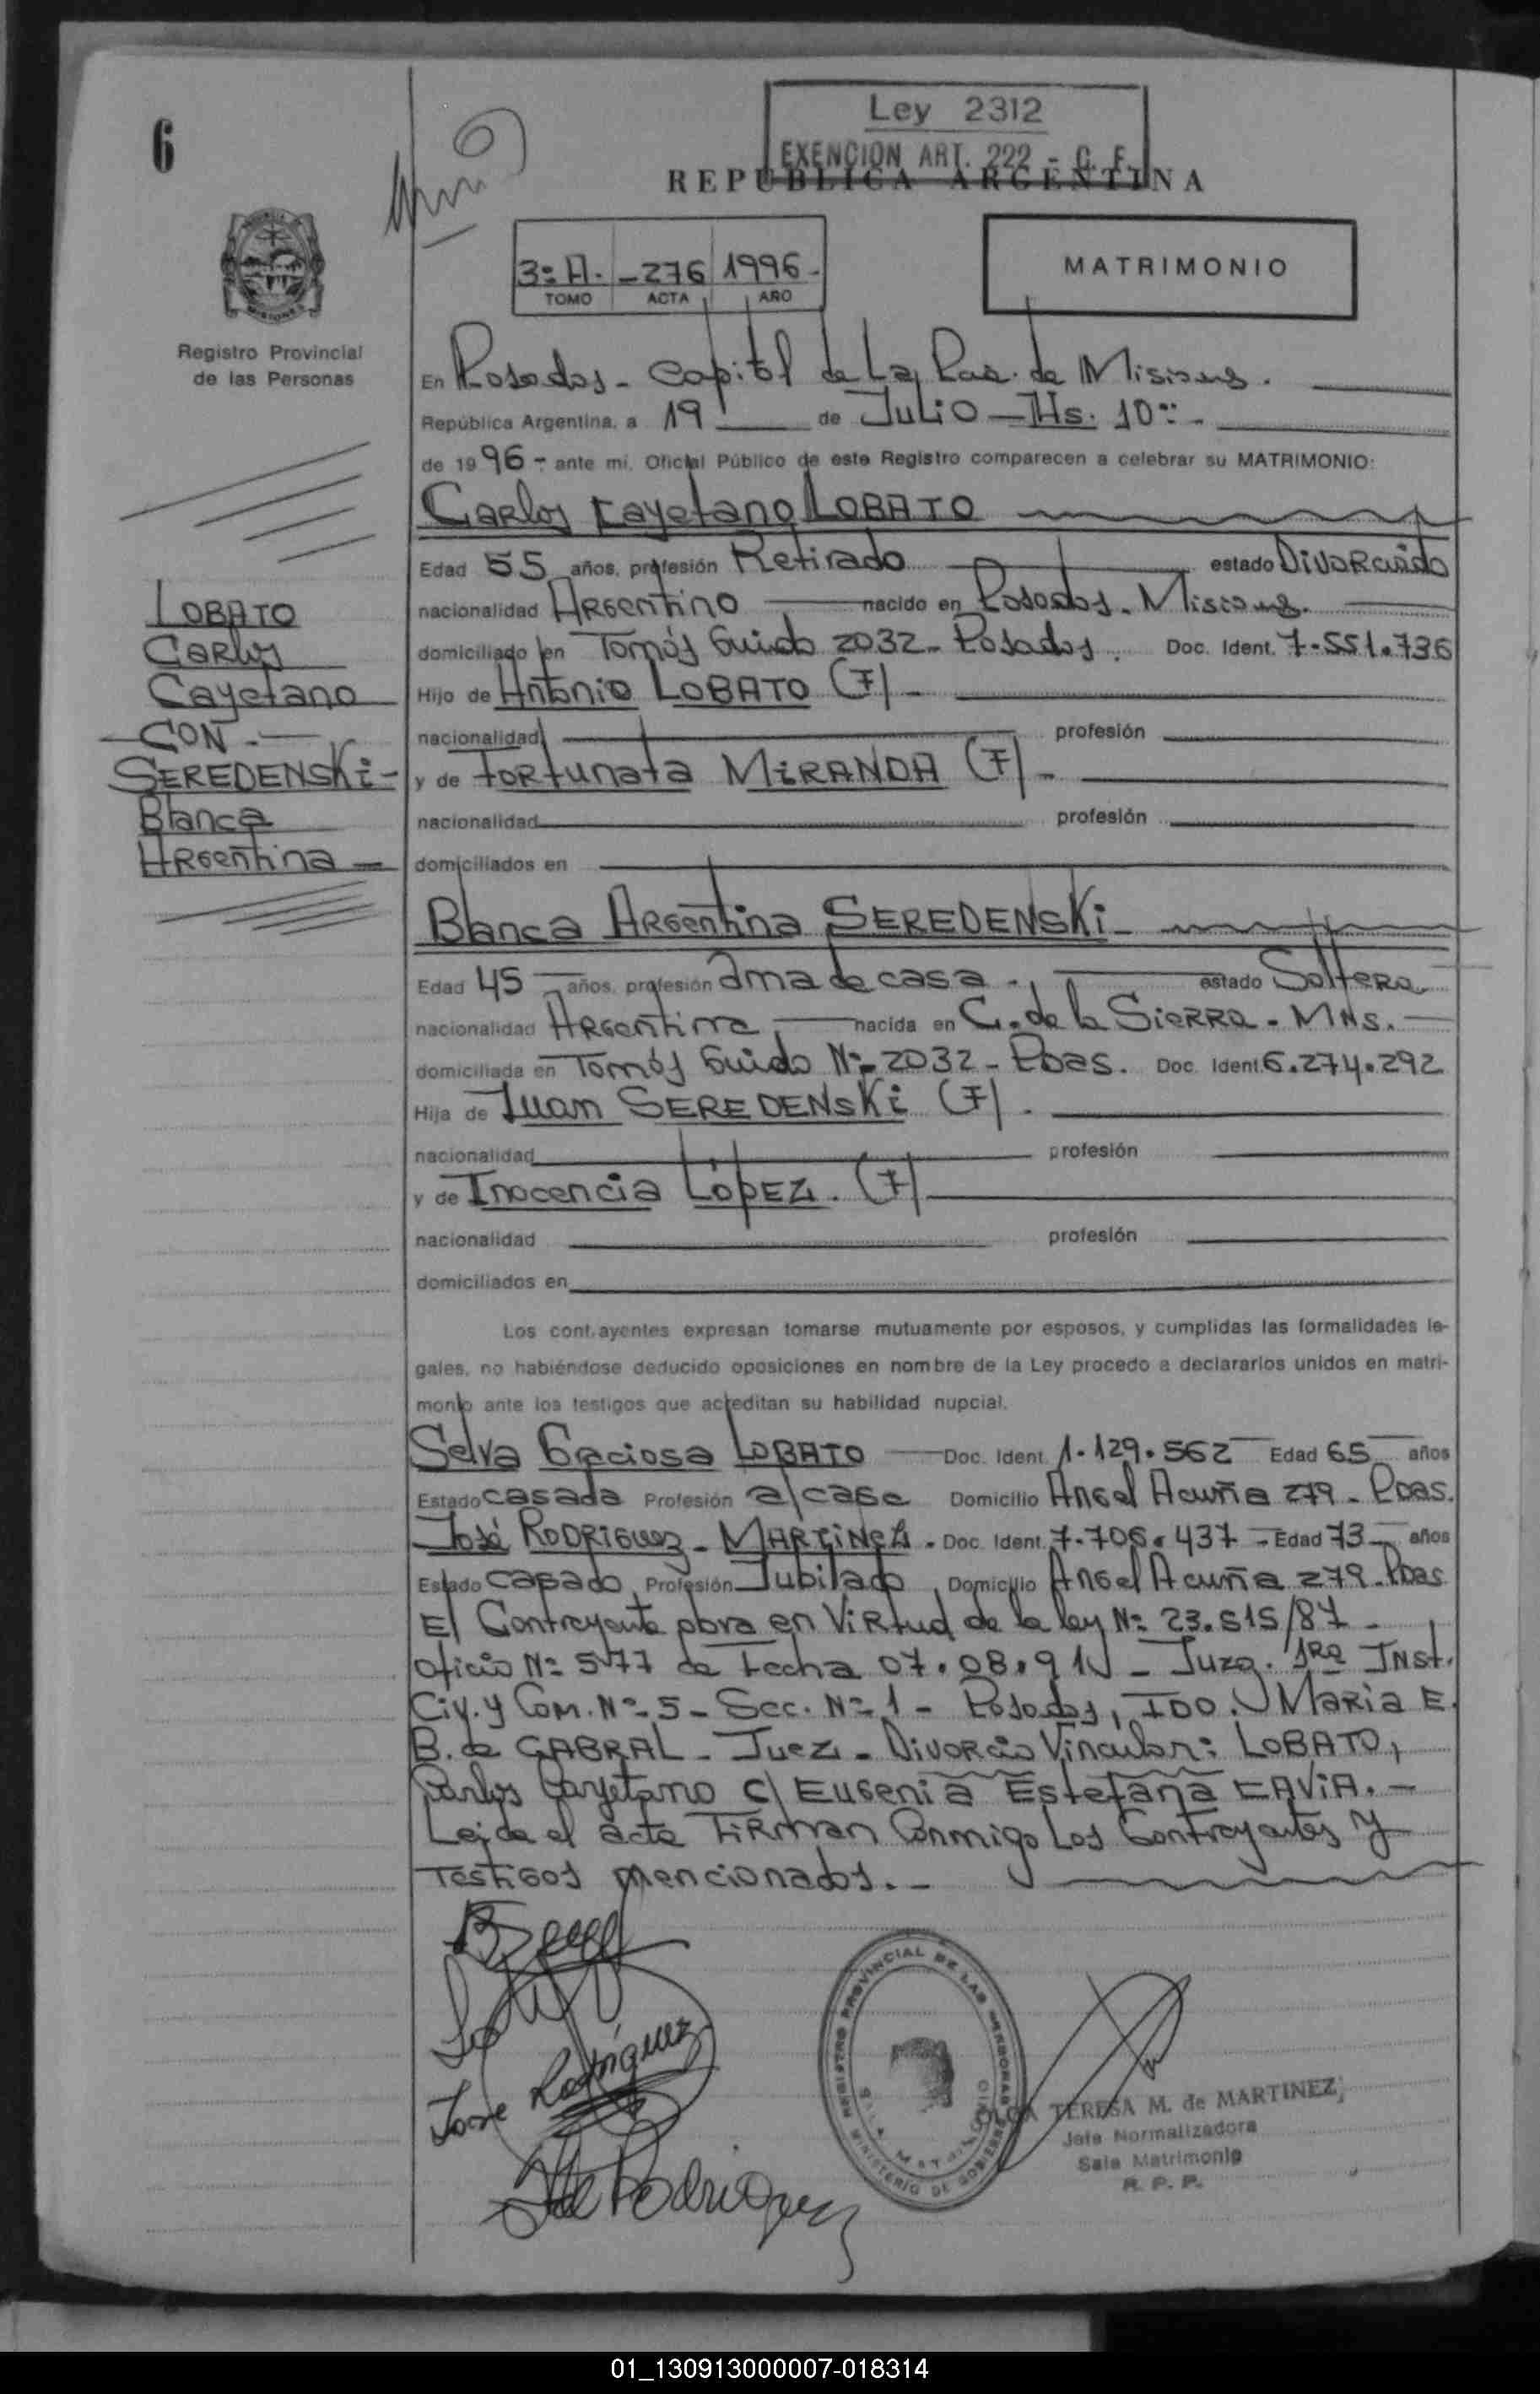 6
Ley 2312
EXENCION ART. 222 - C. F.
REPUBLICA ARGENTINA
3º A. - 276 1996 -
TOMO ACTA AÑO
MATRIMONIO
Registro Provincial
de las Personas
En Posadas - Capital de La Pcia. de Misiones.
República Argentina, a 19 de Julio - Hs. 10:: -
de 1996 - ante mí, Oficial Público de este Registro comparecen a celebrar su MATRIMONIO:
Carlos Cayetano LOBATO
Edad 55 años, profesión Retirado estado Divorciado
nacionalidad Argentino nacido en Posadas. Misiones.
domiciliado en Tomás Guido 2032 - Posados. Doc. Ident. 7.551.736
Hijo de Antonio LOBATO (F) -
nacionalidad profesión
y de Fortunata MiRANDA (F) -
nacionalidad profesión
domiciliados en
LOBATO
Carlos
Cayetano
- CON -
SEREDENSKi -
Blanca
Argentina -
Blanca Argentina SEREDENSKi -
Edad 45 años, profesión ama de casa. estado Soltera
nacionalidad Argentina nacida en C. de la Sierra - MNS.
domiciliada en Tomás Guido Nº 2032 - Pdas. Doc. Ident. 6.274.292
Hija de Juan SEREDENSKi (F).
nacionalidad profesión
y de Inocencia LópEZ. (F)
nacionalidad profesión
domiciliados en
Los contrayentes expresan tomarse mutuamente por esposos, y cumplidas las formalidades le-
gales, no habiéndose deducido oposiciones en nombre de la Ley procedo a declararlos unidos en matri-
monio ante los testigos que acreditan su habilidad nupcial.
Selva Graciosa LOBATO Doc. Ident. 1.129.562 Edad 65 años
Estado casada Profesión a/casa Domicilio Angel Acuña 279 - Pdas.
José Rodriguez - MARTiNEZ. Doc. Ident. 7.706.437 - Edad 73 años
Estado casado Profesión Jubilado Domicilio Angel Acuña 279 - Pdas
El Contrayente obra en Virtud de la ley Nº 23.515/87 -
Oficio Nº 577 de Fecha 07.08.91 - Juzg. 1ra Inst.
Civ. y Com. Nº 5 - Sec. Nº 1 - Posadas, FDO. Maria E.
B. de CABRAL - Juez - Divorcio Vincular: LOBATO,
Carlos Cayetano c/ Eugenia Estefana FAViA. -
Leida el acta Firman Conmigo Los Contrayentes y
Testigos mencionados. -
Jose Rodriguez
Rodriguez
REGISTRO PROVINCIAL DE LAS PERSONAS
MINISTERIO DE GOBIERNO
SALA MATRIMONIO
OLGA TERESA M. de MARTINEZ
Jefe Normalizadora
Sala Matrimonio
R. P. P.
01_130913000007-018314